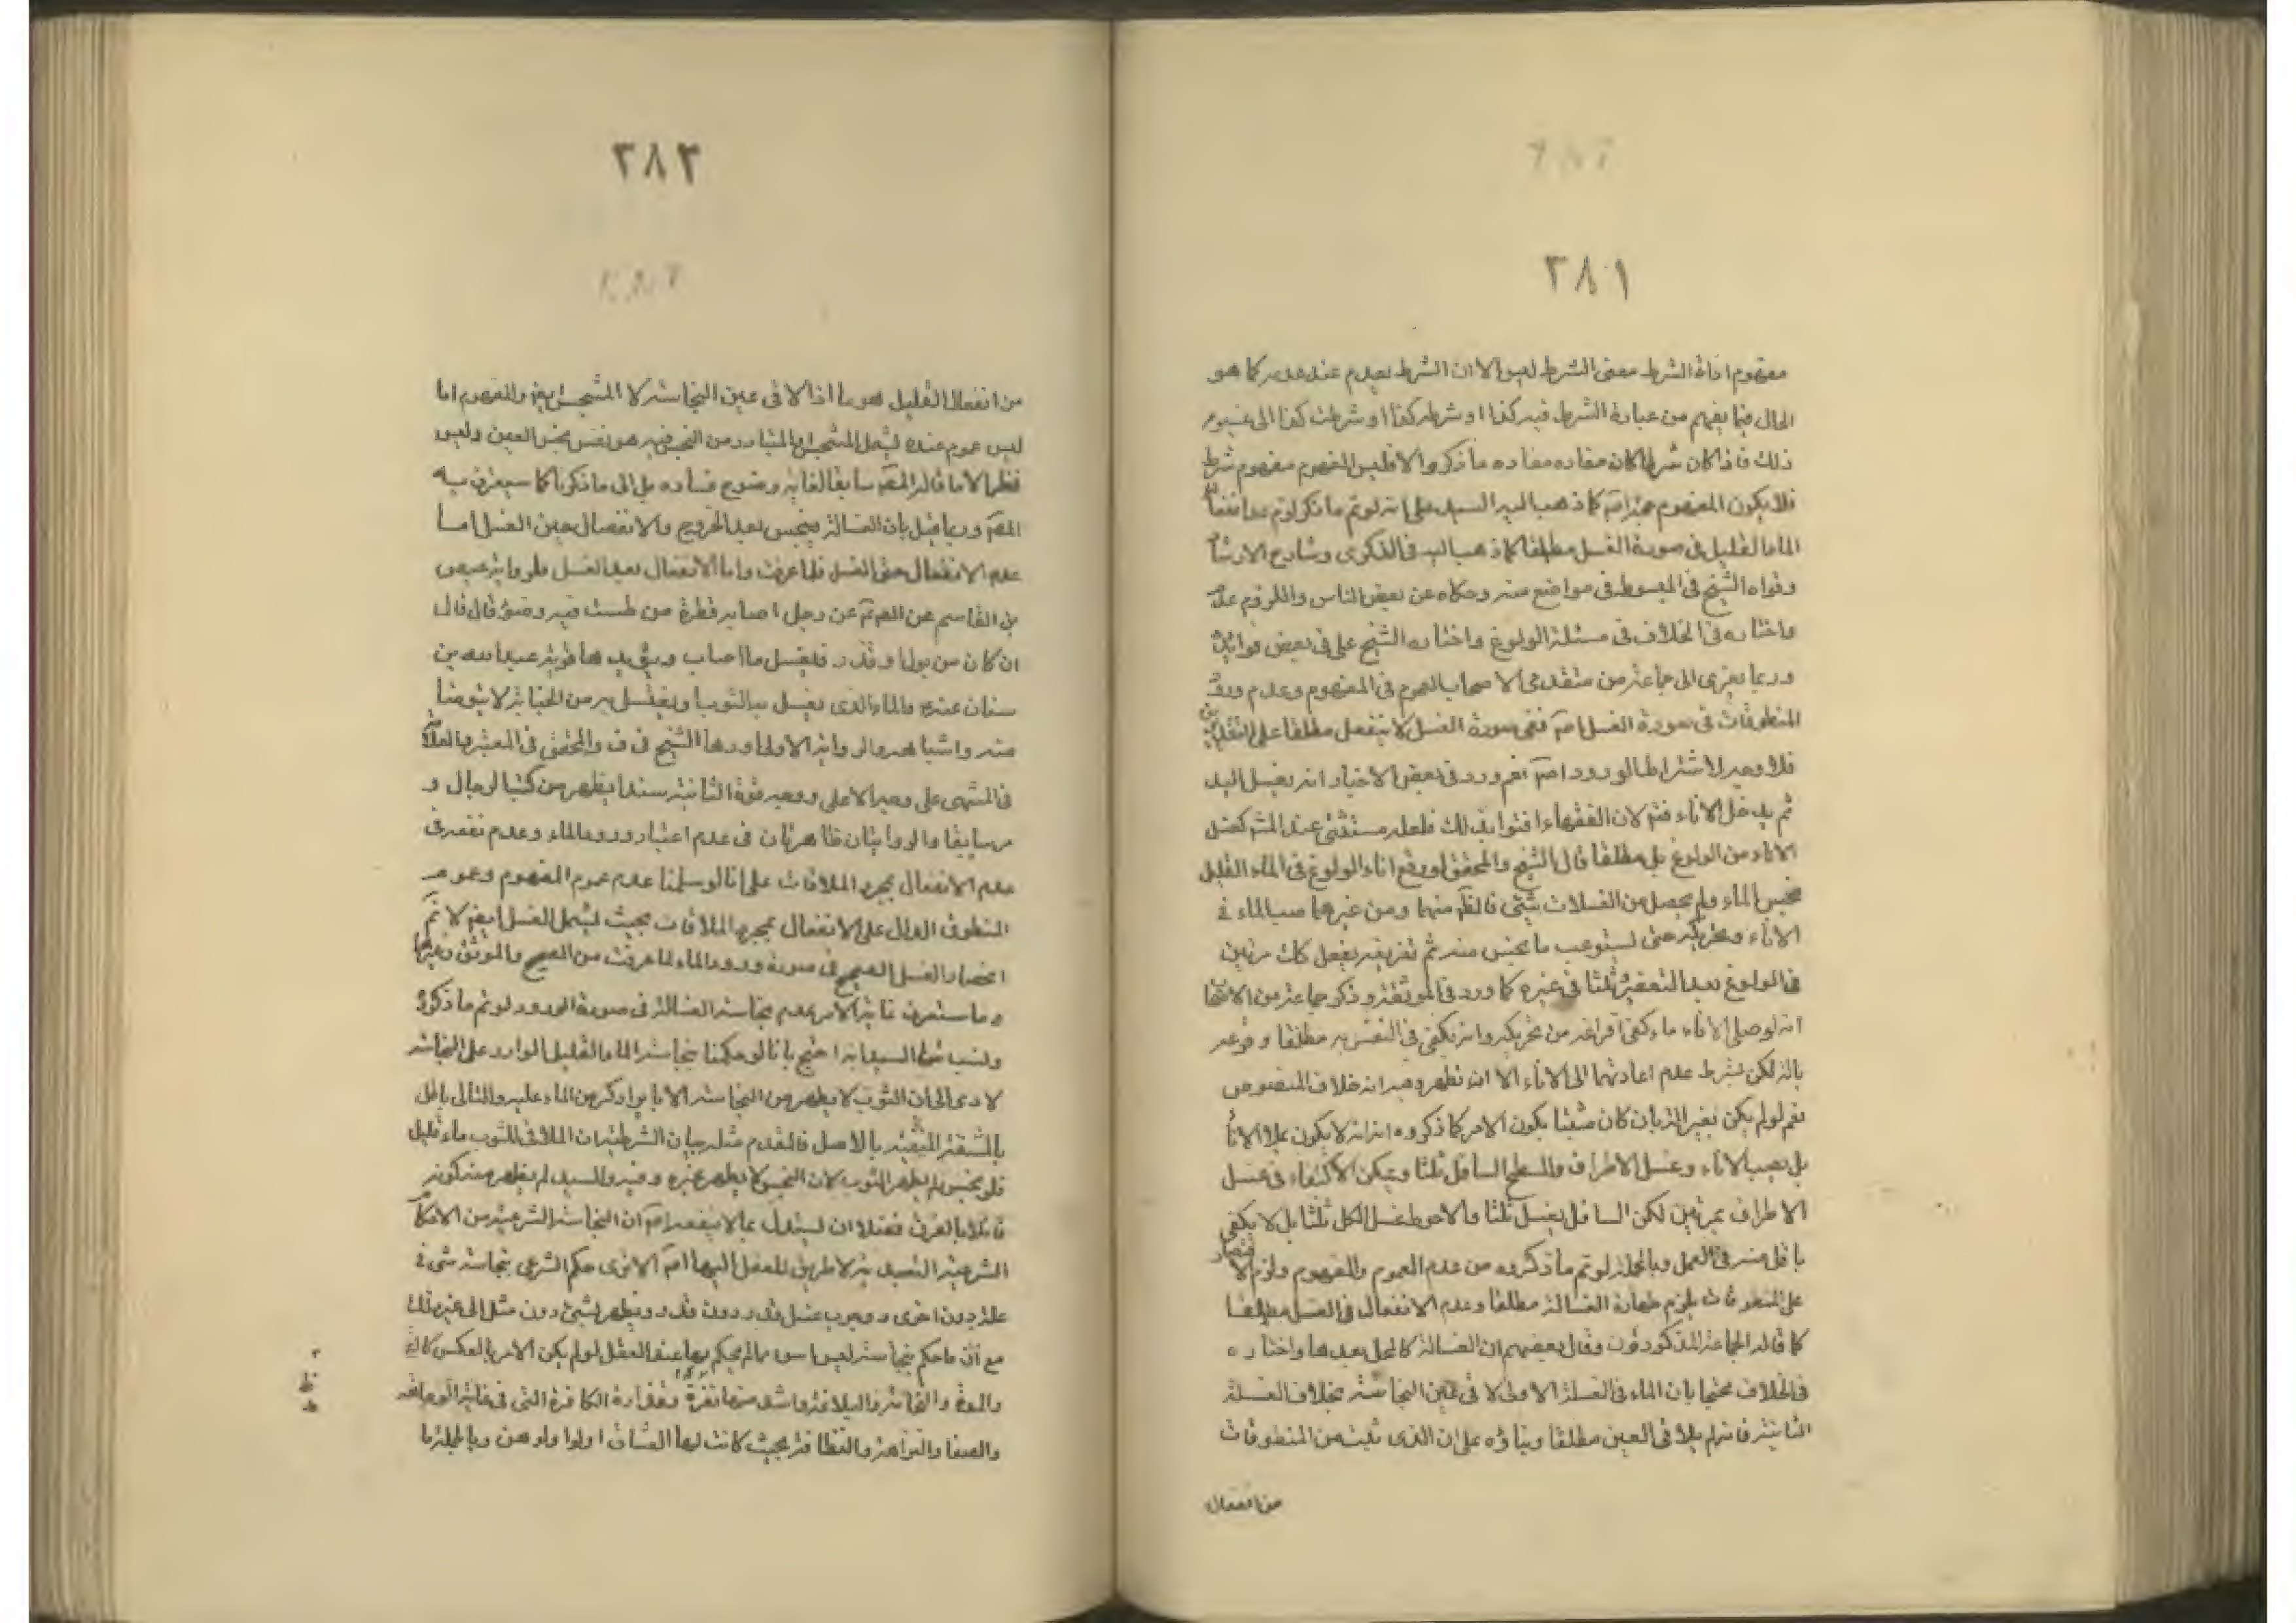 ٢٨١
مفهوم اداة الشرط معنى الشرط ليس الا ان الشرط يعدم عند عدمه كما هو
الحال فيما يفهم من عبارة الشرط فيه كذا او شرطه كذا او شرطت كذا الى غير
ذلك فاذا كان شرطا كان مفاده مفاده ما ذكروا الا فليس المفهوم مفهوم شرط
فلا يكون المفهوم حجة اصم كما ذهب اليه السيد على انه لو تم ما ذكر لزم عدم انفعال
الماء القليل في صورة الغسل مطلقا كما ذهب اليه في الذكرى وشارح الارشاد
وقواه الشيخ في المبسوط في مواضع منه وحكاه عن بعض الناس
واختاره في الخلاف في مسئلة الولوغ واختاره الشيخ علي في بعض فوائده
وربما يعزى الى جماعة من متقدمي الاصحاب العموم في المفهوم وعدم ورود
المنطوقات في صورة الغسل اصم ففي صورة الغسل لا ينفعل مطلقا على التقديرين
فلا وجه لاشتراط الورود اصم نعم ورد في بعض الاخبار انه يغسل اليد
ثم يدخل الاناء فتم لان الفقهاء افتوا بذلك فلعله مستثنى عند المشه كغسل
الاناء من الولوغ بل مطلقا قال الشيخ والمحقق لو وقع اناء الولوغ في الماء القليل
نجس الماء ولم يحصل من الغسلات شئ فالظ منهما ومن غيرهما صب الماء في
الاناء وتحريكه حتى يستوعب ما نجس منه ثم تفريغه يفعل كك مرتين
في الولوغ بعد التعفير ثلثا في غيره كما ورد في الموثقة وذكر جماعة من الاصحاب
انه لو صل الاناء ماء كفى افراغه من تحريكه وانه يكفي في التفريغ مطلقا وقوعه
بالة لكن بشرط عدم اعادتها الى الاناء الا ان تطهر وفيه انه خلاف المنصوص
نعم لو لم يكن بغير الة بان كان مثبتا يكون الامر كما ذكروه انه لا يكون علا الاناء
بل يصب الاناء وغسل الاطراف والسطح السافل ثلثا ويمكن الاكتفاء في غسل
الاطراف بمرتين لكن السافل يغسل ثلثا والاحوط غسل الكل ثلثا بل لا يكفي
باقل منه في العمل وبالجملة لو تم ما ذكروه من عدم العموم والمفهوم ولزم الاقتصار
على المنطوقات يلزم طهارة الغسالة مطلقا وعدم الانفعال في الغسل مطلقا
كما قاله الجماعة المذكورون وقال بعضهم ان الغسالة كالمحل بعدها واختاره
في الخلاف محتجا بان الماء في الغسلة الاولى لاقى عين النجاسة بخلاف الغسلة
الثانية فانه لم يلاق العين مطلقا وبناؤه على ان الذي ثبت من المنطوقات
من انفعال
٢٨٢
من انفعال القليل هو ما اذا لاقى عين النجاسة لا المتنجس ايضا والمفهوم اما
ليس عموم عنده ليشمل المتنجس او المتبادر من النجس فيه هو نفس نجس العين وليس
نظر الا ما قاله المص سابقا لغاية وضوح فساده بل الى ما ذكرنا كما سيعترف به
المص وربما قيل بان الغسالة ينجس بعد الخروج والانفصال حين الغسل اما
عدم الانفعال حين الغسل فلما عرفت واما الانفعال بعد الغسل فلرواية عيص
بن القاسم عن الصم عن رجل اصابه قطرة من طست فيه وضوء قال قال
ان كان من بول او قذر فليغسل ما اصاب ويؤيدها قوية عبد الله بن
سنان عنه والماء الذي يغسل به الثوب او يغتسل به من الجنابة لا يتوضأ
منه واشباهه والرواية الاولى اوردها الشيخ في ف والمحقق في المعتبر والعلامة
في المنتهى على وجه الاعلى ووجه قوة الثانية سندا يظهر من كتب الرجال و
مر سابقا والروايتان ظاهرتان في عدم اعتبار ورود الماء وعدم نفعه في
عدم الانفعال بمجرد الملاقات على انا لو سلمنا عدم عموم المفهوم وعموم
المنطوق الدال على الانفعال بمجرد الملاقات بحيث يشمل الغسل ايضا لا تم
انحصار الغسل الصحيح في صورة ورود الماء لما عرفت من الصحيح والموثق وغيرها
وما ستعرف غاية الامر عدم نجاسة الغسالة في صورة الورود لو تم ما ذكروه
ونسب الى السيد انه احتج بانا لو حكمنا بنجاسة الماء القليل الوارد على النجاسة
لادى الى ان الثوب لا يطهر من النجاسة الا بايراد كر من الماء عليه والتالي باطل
بالمشقة المنفية بالاصل فالمقدم مثله بيان الشرطية ان الملاقى للثوب ماء قليل
فلو نجس لم يطهر الثوب لان النجس لا يطهر غيره وفيه والسيد لم يظهر منه كونه
قائلا بالفرق فضلا ان يستدل بما لا ينفعه اصم ان النجاسة الشرعية من الاحكام
الشرعية التعبدية لا طريق للعقل اليها اصم الا ترى حكم الشرع بنجاسة شئ في
علة دون اخرى ووجوب غسل قذر دون قذر وتطهر شئ دون مثل الى غير ذلك
مع ان ما حكم بنجاسته ليس اسوء مما لم يحكم بها عند العقل لو لم يكن الامر بالعكس كالقئ
والمدة واشد منها نفرة وقذارة الكافرة التي في غاية الوجاهة
والصفا والنزاهة والنظافة بحيث كانت لها العشاق اولوا ولدهن وبالجملة ما
ظ